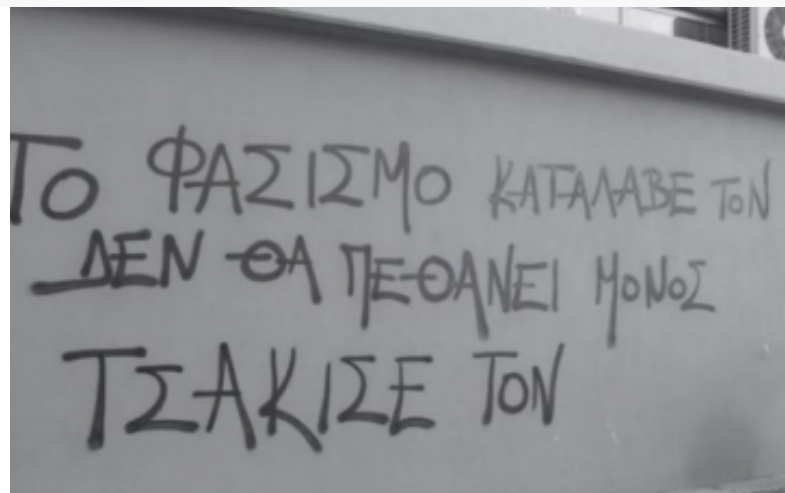 ΤΟ ΦΑΣΙΣΜΟ ΚΑΤΑΛΑΒΕ ΤΟΝ
ΔΕΝ ΘΑ ΠΕΘΑΝΕΙ ΜΟΝΟΣ
ΤΣΑΚΙΣΕ ΤΟΝ